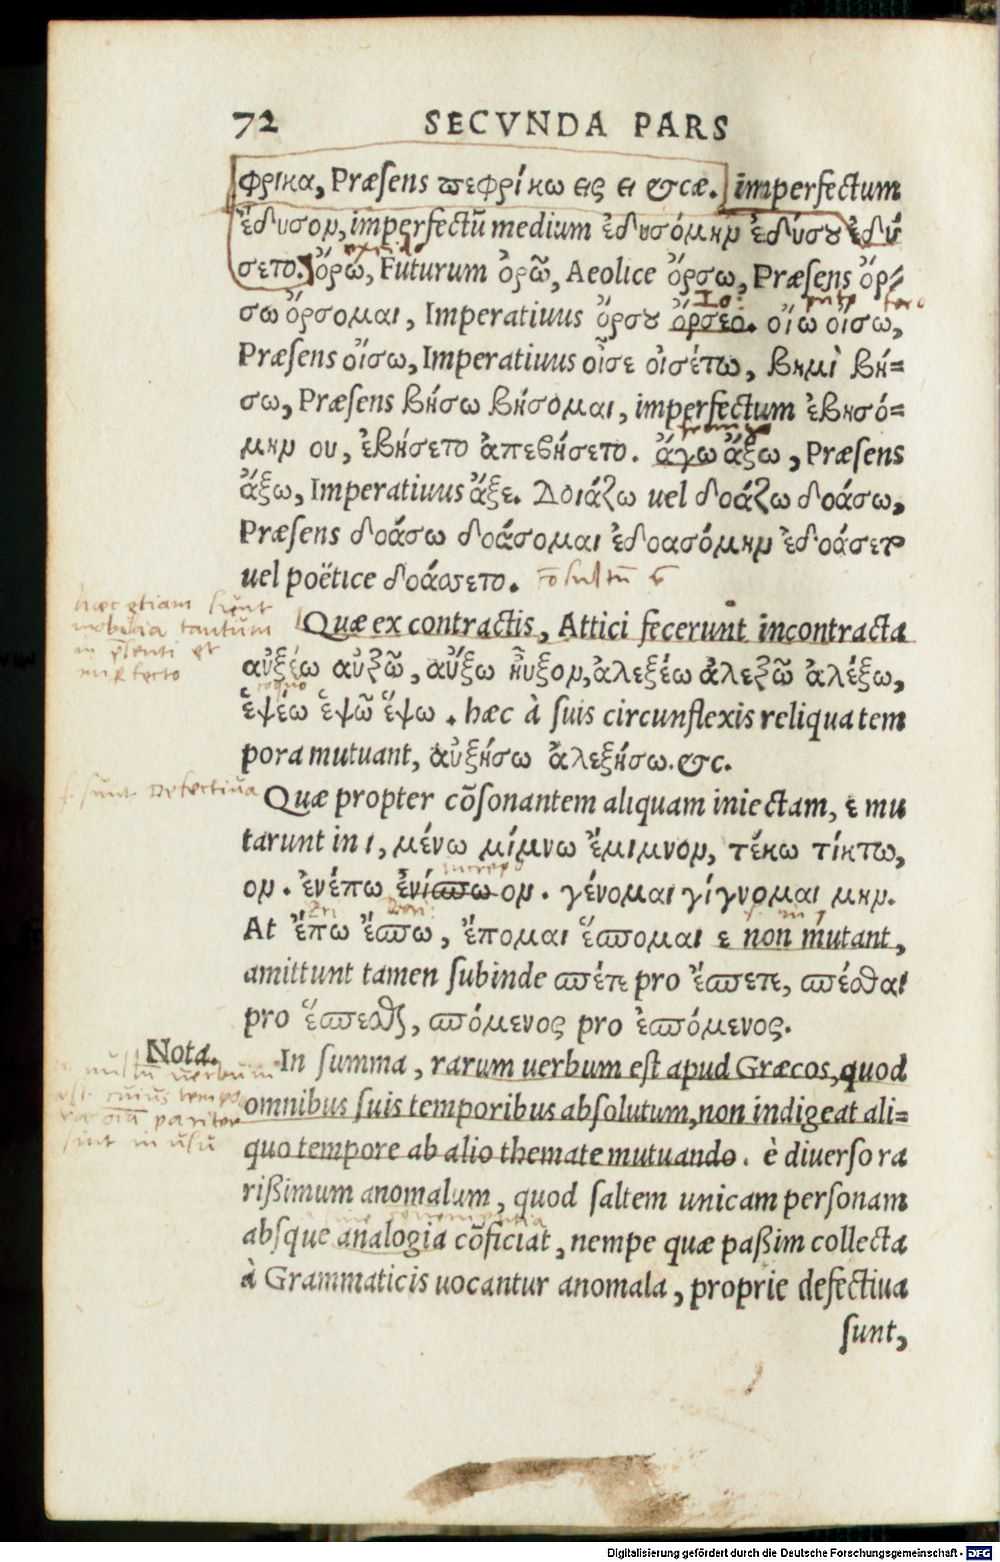 72 SECVNDA PARS
φρικα, Præſens πεφρίκω εις ει &cæ. imperfectum
ἔδυσον, imperfectũ medium ἐδυσόμην ἐδύσου ἐδύ
σετο. ὄρω, Futurum ὀρῶ, Aeolice ὄρσω, Præſens ὄρ⸗
σω ὄρσομαι, Imperatiuus ὄρσου ὄρσεο. οἴω οἴσω,
Præſens οἴσω, Imperatiuus οἶσε οἰσέτω, βημὶ βή=
σω, Præſens βήσω βήσομαι, imperfectum ἐβησό=
μην ου, ἐβήσετο ἀπεβήσετο. ἄγω ἄξω, Præſens
ἄξω, Imperatiuus ἄξε. Δοιάζω uel δοάζω δοάσω,
Præſens δοάσω δοάσομαι ἐδοασόμην ἐδοάσετο
uel poëtice δοάσσετο.
hæc etiam sunt
mobilia tantum
Quæ ex contractis, Attici fecerunt incontracta
αὐξέω αὐξῶ, αὔξω ηὖξον, ἀλεξέω ἀλεξῶ ἀλέξω,
ἑψέω ἑψῶ ἕψω. hæc à ſuis circunflexis reliqua tem
pora mutuant, αὐξήσω ἀλεξήσω. &c.
sunt Defectiua
Quæ propter cõſonantem aliquam iniectam, ε mu
tarunt in ι, μένω μίμνω ἔμιμνον, τέκω τίκτω,
ον. ἐνέπω ἐνίσπω ον. γένομαι γίγνομαι μην.
At ἔπω ἔσπω, ἕπομαι ἕσπομαι ε non mutant,
amittunt tamen ſubinde σπέτε pro ἔσπετε, σπέσθαι
pro ἕσπεσθαι, σπόμενος pro ἑσπόμενος.
Nota.
In ſumma, rarum uerbum eſt apud Græcos, quod
omnibus ſuis temporibus abſolutum, non indigeat ali=
quo tempore ab alio themate mutuando. è diuerſo ra
rißimum anomalum, quod ſaltem unicam perſonam
abſque analogia cõficiat, nempe quæ paßim collecta
à Grammaticis uocantur anomala, proprie defectiua
ſunt,
Digitalisierung gefördert durch die Deutsche Forschungsgemeinschaft - DFG